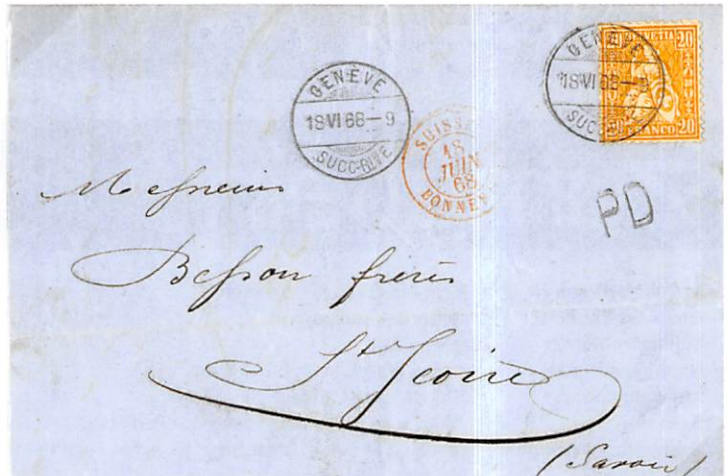 GENÈVE
18 VI 68–9
SUCC-RIVE
SUISSE
18
JUIN
68
BONNEV
GENÈVE
18 VI 68–9
SUCC-
20 HELVETIA 20
20 FRANCO 20
PD
Messieurs
Besson frères
St Jeoire
(Savoie)